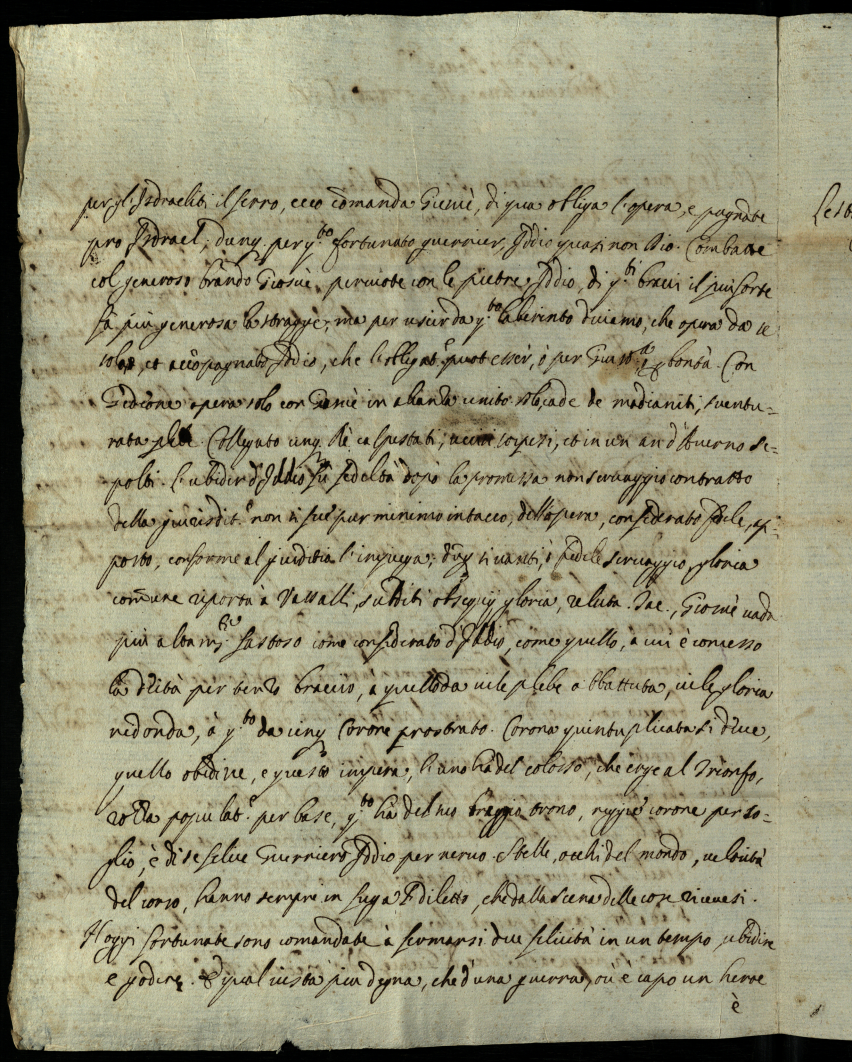 per gl'Isdraeliti il ferro, ecco comanda Giosuè, di qua obliga l'opera, e pugnate
pro Isdrael, dunq. per q.to fortunato guerrier, Iddio quasi non Dio. Combatte
col generoso brando Giosuè, percuote con le pietre Iddio, di q.ti bracci il più forte
fà più generosa la straggie, ma per uscir da q.to laberinto diciamo, che opera da se
solo, et accōpagnato Iddio, che l'obligat.e puol esser, ò per bontà. Con
Gedeone opera solo con Giosuè in alianza unito solo, cade de madianiti, sventu-
rata plebe. Collegato cinq. Rè calpestati, uccisi sospesi, et in un antro d'Averno se-
polti. L'ubidir d'Iddio fù fedeltà dopò la promessa non servaggio contratto
della giurisdit.e non si fece pur minimo intacco, dell'opera, considerato facile, op-
posto, conforme al giuditia l'impiega; ò fedele servaggio, gloria
comune riporta a Vassalli, sudditi ossequij gloria, Giosuè vada
più altam.te fastoso come considerato d'Iddio, come quello, a cui è concesso
la deità per terzo braccio, à quello da vile plebe abbattuta, vile gloria
ridonda, à q.to da cinq. Corone prostrato. Corona quintuplicata si deve,
quello obidire, e questo impera, l'uno hà del colosso, che erge al Trionfo,
rotta populat.e per base, q.to hà del suo braggio trono, reggie corone per so-
glio, è di se selue Guerriero Iddio per nervo. Stelle, occhi del mondo, velocità
del corso, hanno sempre in fuga il diletto, che dalla scena delle cose ricevesi.
Hoggi fortunate sono comandate à fermarsi due felicità in un tempo ubidire
e godere. E qual vista più degna, che d'una guerra, ov'è capo un heroe
è